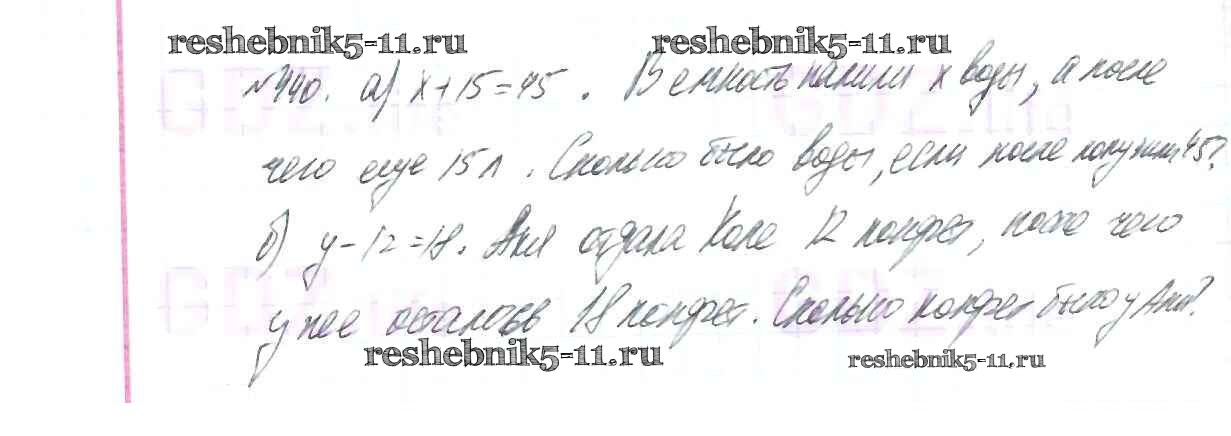 reshebnik5-11.ru reshebnik5-11.ru
№440. а) x+15=45. В емкость налили x воды, а после
чего еще 15 л. Сколько было воды, если после получили 45?
б) y-12=18. Аня отдала Коле 12 конфет, после чего
у нее осталось 18 конфет. Сколько конфет было у Ани?
reshebnik5-11.ru reshebnik5-11.ru